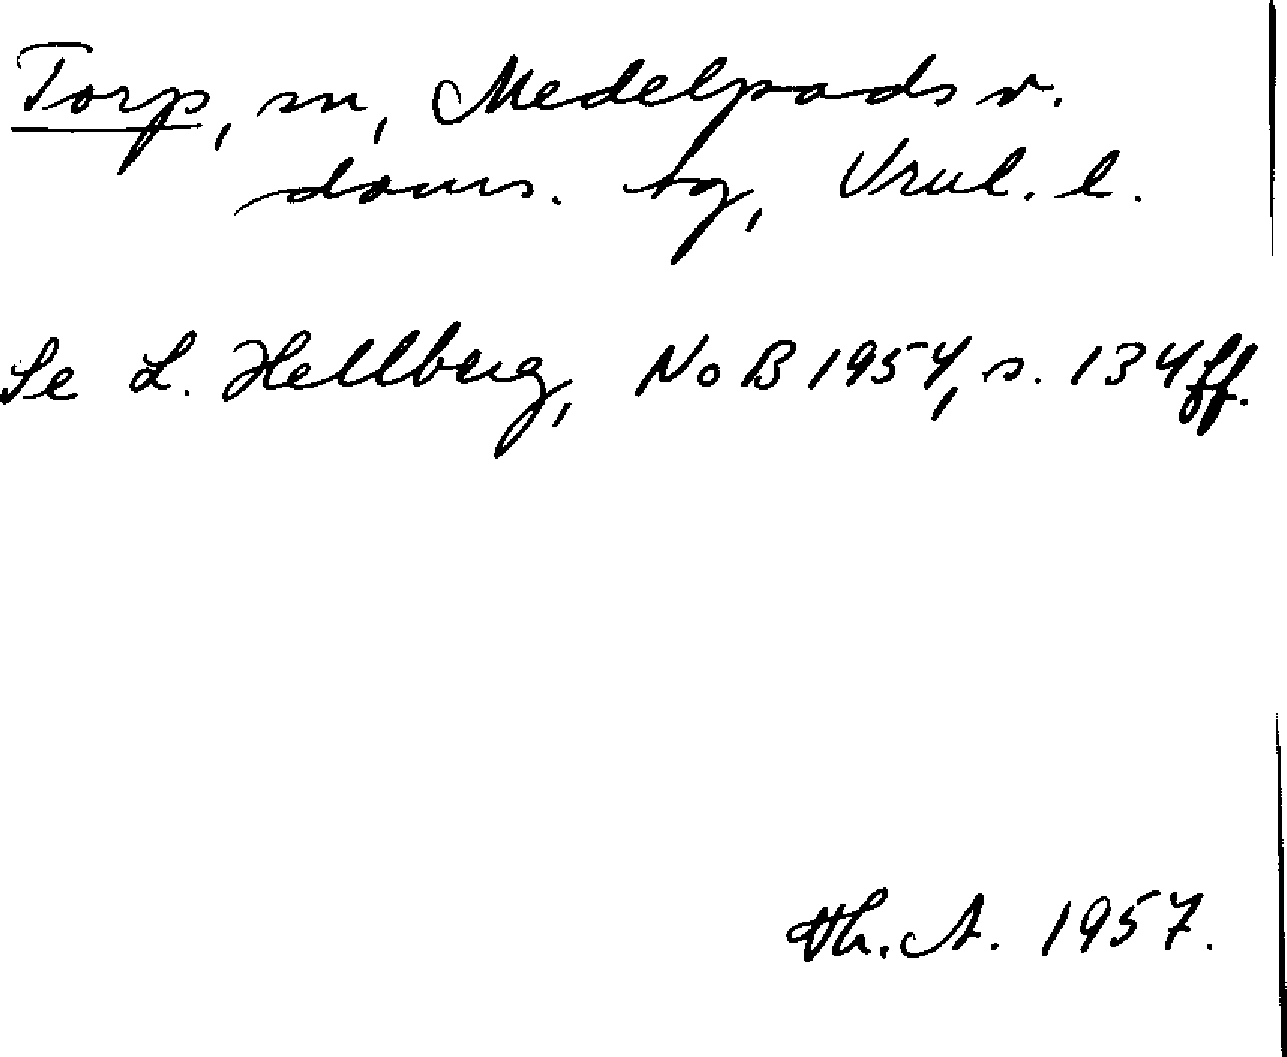 Torp, sn, Medelpads v.
doms. tg, Vrnl. l.
Se L. Hellberg, NoB 1954, s. 134ff.
Th. A. 1957.